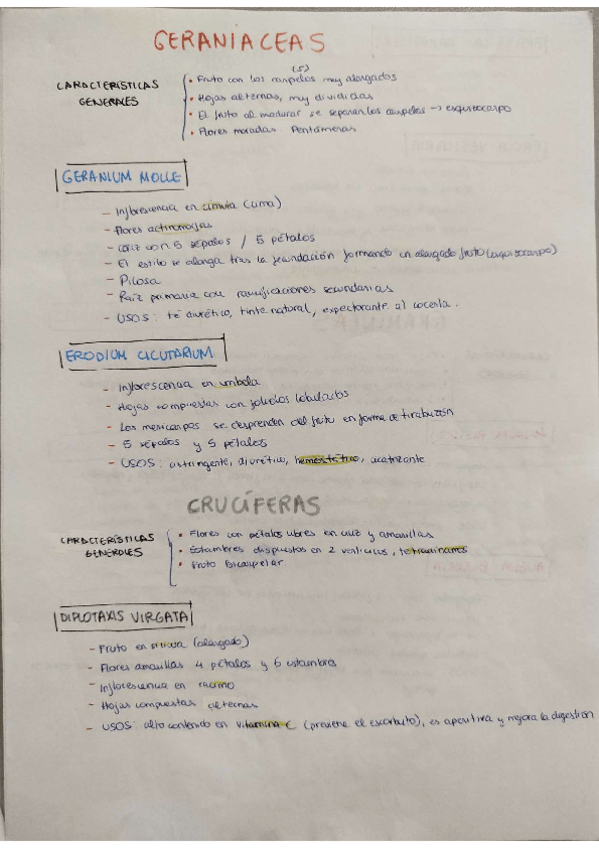 GERANIACEAS
CARACTERÍSTICAS GENERALES
(5)
• Fruto con los carpelos muy alargados
• Hojas alternas, muy divididas
• El fruto al madurar se separan los carpelos → esquizocarpo
• Flores moradas. Pentámeras
GERANIUM MOLLE
- Inflorescencia en cimula (cima)
- Flores actinomorfas
- Cáliz con 5 sépalos / 5 pétalos
- El estilo se alarga tras la fecundación formando un alargado fruto (esquizocarpo)
- Pilosa
- Raíz primaria con ramificaciones secundarias
- USOS: té diurético, tinte natural, expectorante al cocerla.
ERODIUM CICUTARIUM
- Inflorescencia en umbela
- Hojas compuestas con foliolos lobulados
- Los mericarpos se desprenden del fruto en forma de tirabuzón
- 5 sépalos y 5 pétalos
- USOS: astringente, diurético, hemostático, cicatrizante
CRUCÍFERAS
CARACTERÍSTICAS GENERALES
• Flores con pétalos libres en cruz y amarillas
• Estambres dispuestos en 2 verticilos, tetradínamos
• Fruto bicarpelar
DIPLOTAXIS VIRGATA
- Fruto en silicua (alargado)
- Flores amarillas 4 pétalos y 6 estambres
- Inflorescencia en racimo
- Hojas compuestas alternas
- USOS: alto contenido en vitamina C (previene el escorbuto), es aperitiva y mejora la digestión